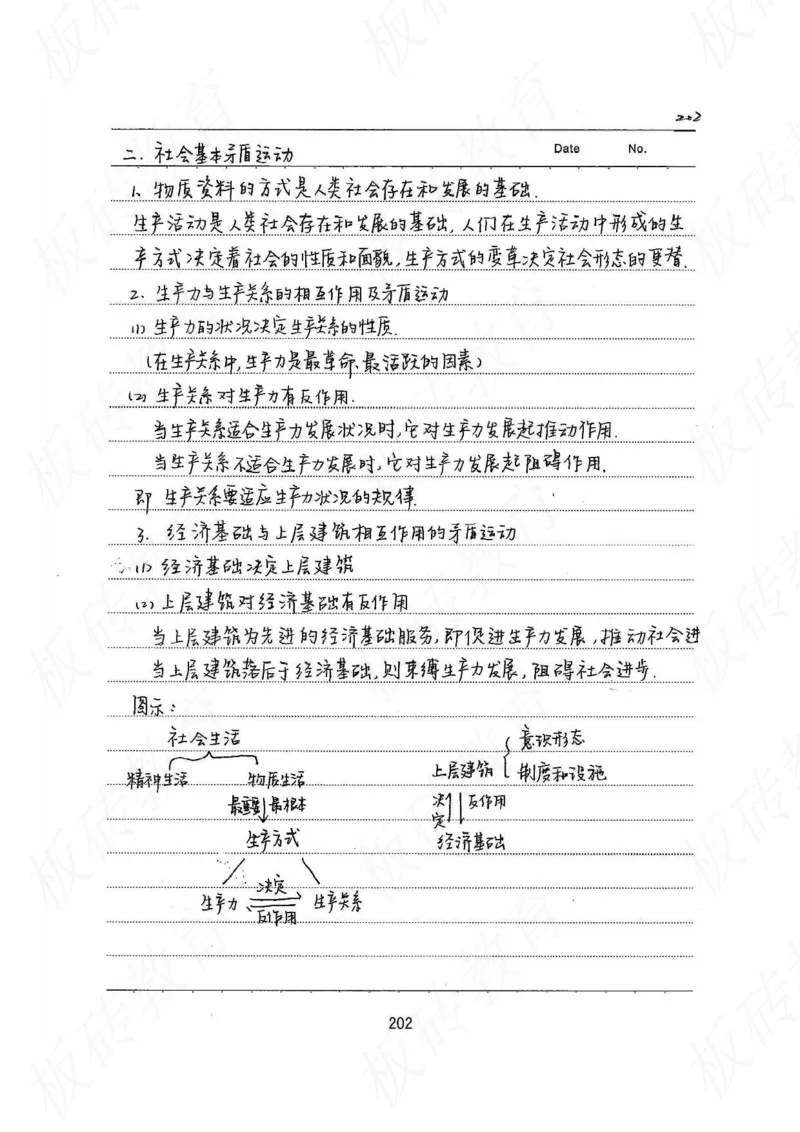 202
Date No.
二. 社会基本矛盾运动
1、物质资料的方式是人类社会存在和发展的基础.
生产活动是人类社会存在和发展的基础, 人们在生产活动中形成的生
产方式决定着社会的性质和面貌, 生产方式的变革决定社会形态的更替.
2. 生产力与生产关系的相互作用及矛盾运动
(1) 生产力的状况决定生产关系的性质.
(在生产关系中, 生产力是最革命、最活跃的因素)
(2) 生产关系对生产力有反作用.
当生产关系适合生产力发展状况时, 它对生产力发展起推动作用.
当生产关系不适合生产力发展时, 它对生产力发展起阻碍作用.
即 生产关系要适应生产力状况的规律.
3. 经济基础与上层建筑相互作用的矛盾运动
(1) 经济基础决定上层建筑
(2) 上层建筑对经济基础有反作用
当上层建筑为先进的经济基础服务, 即促进生产力发展, 推动社会进
当上层建筑落后于经济基础, 则束缚生产力发展, 阻碍社会进步.
图示:
社会生活
精神生活 物质生活
最重要 最根本
生产方式
生产力 决定 反作用 生产关系
意识形态
上层建筑 制度和设施
决定 反作用
经济基础
202
板砖教育